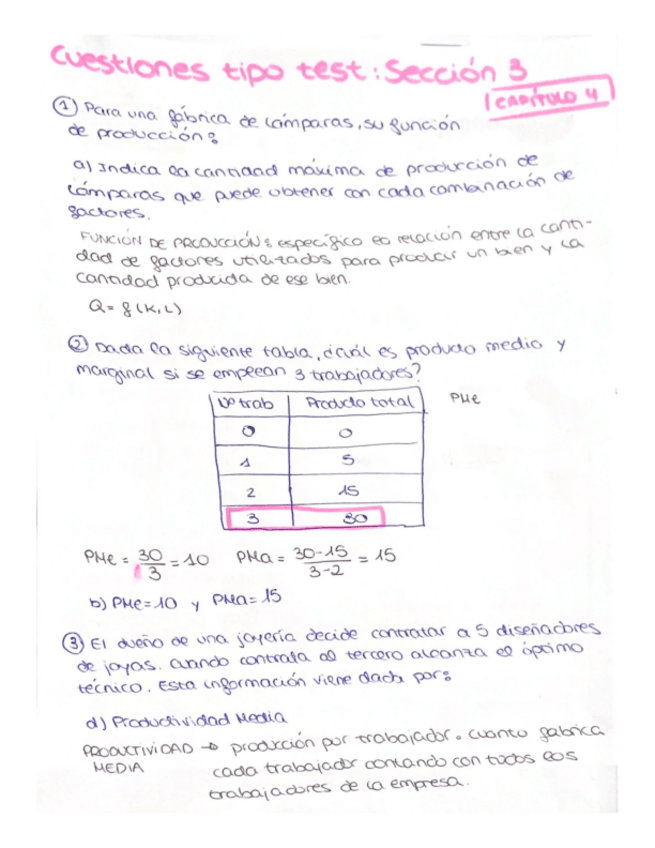 Cuestiones tipo test: Sección 3
CAPÍTULO 4
① Para una fábrica de lámparas, su función
de producción:
a) Indica la cantidad máxima de producción de
lámparas que puede obtener con cada combinación de
factores.
FUNCIÓN DE PRODUCCIÓN: específico la relación entre la canti-
dad de factores utilizados para producir un bien y la
cantidad producida de ese bien.
Q = f (K, L)
② Dada la siguiente tabla, ¿cuál es producto medio y
marginal si se emplean 3 trabajadores?
Nº trab | Producto total
PMe
0 | 0
1 | 5
2 | 15
3 | 30
PMe = 30/3 = 10 PMa = 30-15/3-2 = 15
b) PMe = 10 y PMa = 15
③ El dueño de una joyería decide contratar a 5 diseñadores
de joyas. Cuando contrata al tercero alcanza el óptimo
técnico. Esta información viene dada por:
d) Productividad Media
PRODUCTIVIDAD → producción por trabajador. Cuanto fabrica
MEDIA cada trabajador contando con todos los
trabajadores de la empresa.